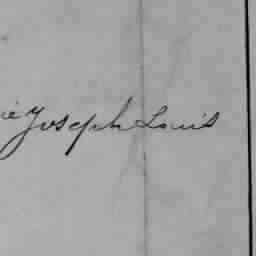 Joseph Louis